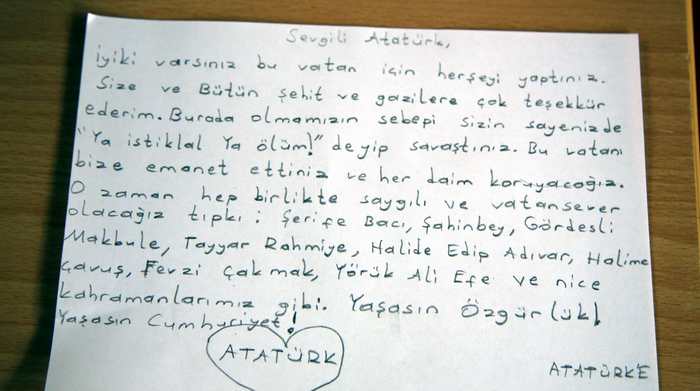 Sevgili Atatürk,
İyiki varsınız bu vatan için herşeyi yaptınız.
Size ve Bütün şehit ve gazilere çok teşekkür
ederim. Burada olmamızın sebepi sizin sayenizde
"Ya istiklal Ya ölüm!" deyip savaştınız. Bu vatanı
bize emanet ettiniz ve her daim koruyacağız.
O zaman hep birlikte saygılı ve vatansever
olacağız tıpkı: Şerife Bacı, Şahinbey, Gördesli
Makbule, Tayyar Rahmiye, Halide Edip Adıvar, Halime
çavuş, Fevzi Çakmak, Yörük Ali Efe ve nice
kahramanlarımız gibi. Yaşasın Özgürlük!
Yaşasın Cumhuriyet!
ATATÜRK
ATATÜRK'E